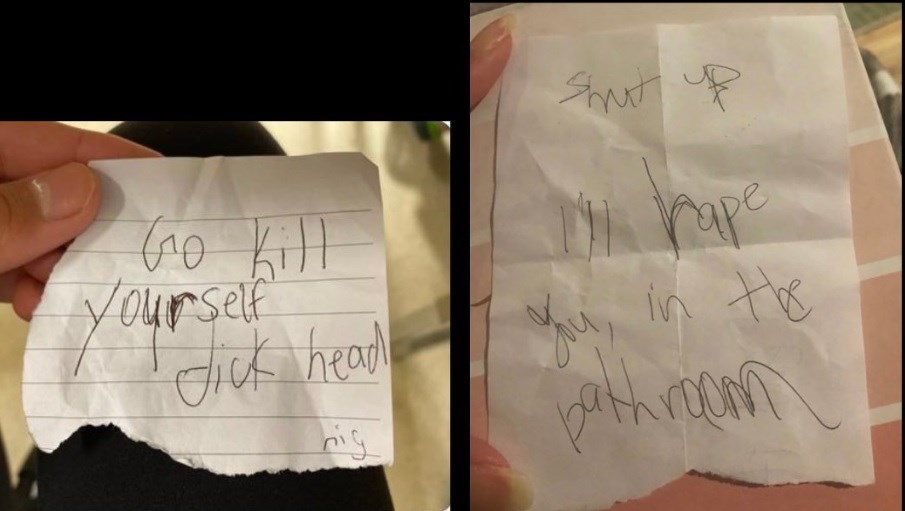 Go kill
yourself
dick head
nig
Shut up
I'll rape
you, in the
bathroom